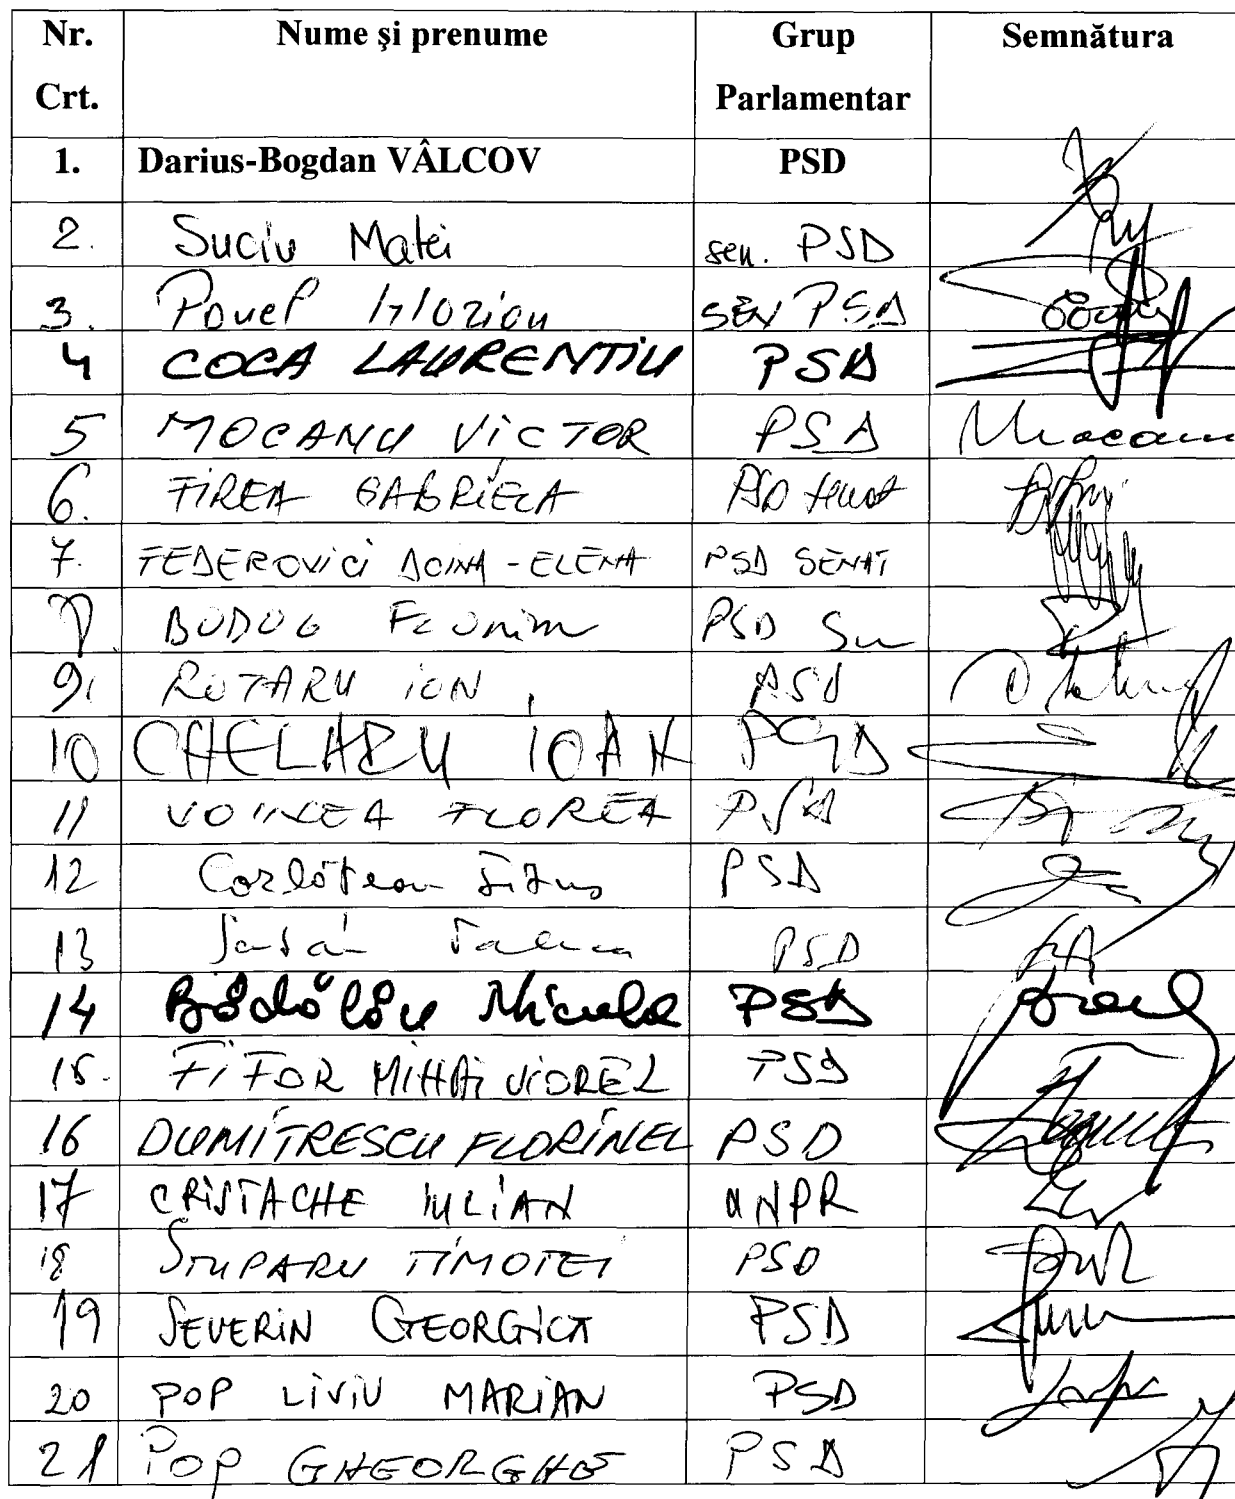 Nr. Crt. Nume şi prenume Grup Parlamentar Semnătura
1. Darius-Bogdan VÂLCOV PSD
2. Suciu Matei sen. PSD
3. PSD
4 COCA LAURENTIU PSD
5 MOCANU VICTOR PSD Mocanu
6. FIREA GABRIELA PSD Senat
7. FEDEROVICI DOINA-ELENA PSD SENAT
8. BODOG Florin PSD
9. ROTARU ION PSD
10 CHELARU IOAN PSD
11 VOINEA FLOREA PSD
12 Corlățean Titus PSD
13 PSD
14 Bădălău Niculae PSD
15. FIFOR MIHAI VIOREL PSD
16 DUMITRESCU FLORINEL PSD
17 CRISTACHE IULIAN UNPR
18 STUPARU TIMOTEI PSD
19 SEVERIN GEORGICA PSD
20 POP LIVIU MARIAN PSD
21 POP GHEORGHE PSD